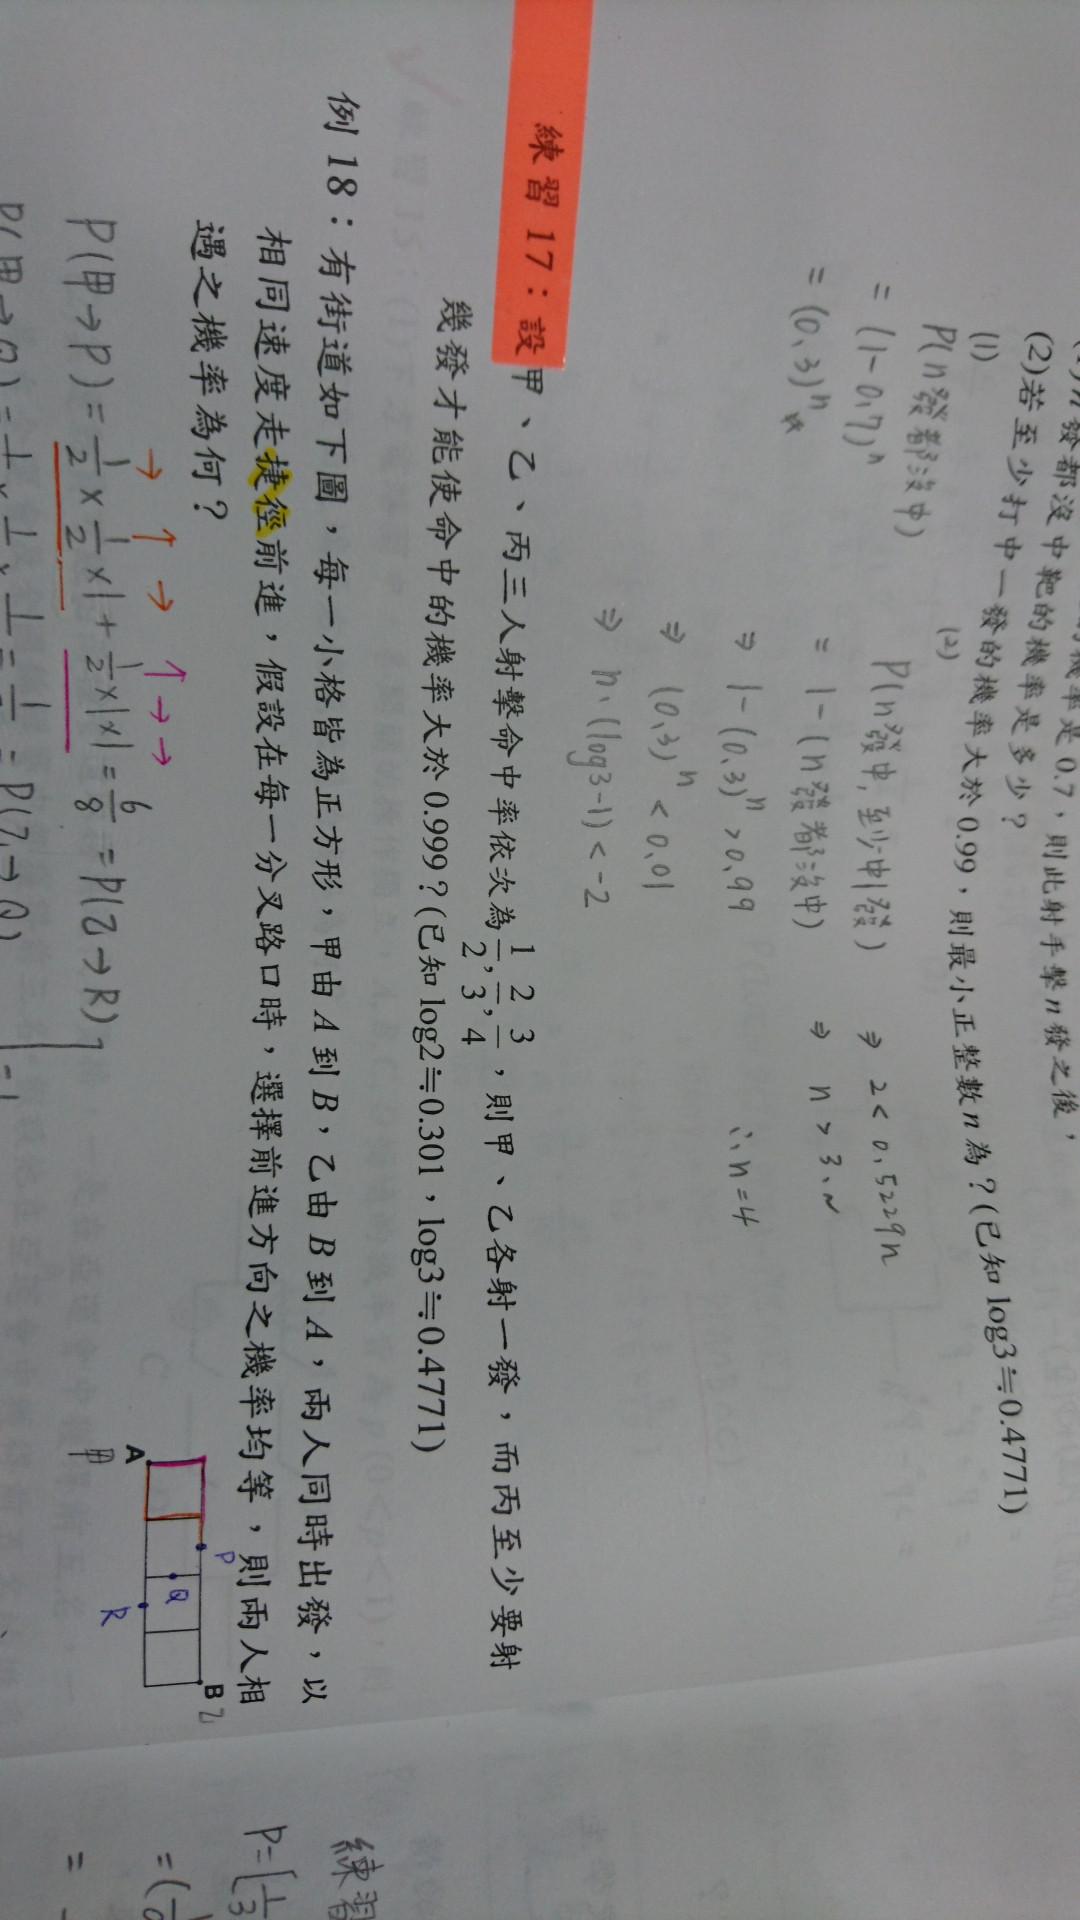 發都沒中靶的機率是多少？
(2)若至少打中一發的機率大於0.99，則最小正整數n為？(已知log3≒0.4771)
機率是0.7，則此射手擊n發之後，
(1)
P(n發都沒中)
= (1-0.7)ⁿ
= (0.3)ⁿ
(2)
P(n發中,至少中1發)
= 1-(n發都沒中)
⇒ 1-(0.3)ⁿ > 0.99
⇒ (0.3)ⁿ < 0.01
⇒ n.(log3-1) < -2
⇒ 2 < 0.5229n
⇒ n > 3.~
∴ n=4
練習17：設甲、乙、丙三人射擊命中率依次為1/2, 2/3, 3/4，則甲、乙各射一發，而丙至少要射
幾發才能使命中的機率大於0.999？(已知log2≒0.301，log3≒0.4771)
例18：有街道如下圖，每一小格皆為正方形，甲由A到B，乙由B到A，兩人同時出發，以
相同速度走捷徑前進，假設在每一分叉路口時，選擇前進方向之機率均等，則兩人相
遇之機率為何？
→ ↑ → ↑ → →
P(甲→P) = 1/2 × 1/2 ×1 + 1/2 ×1×1 = 6/8 = P(乙→R)
P(甲→Q) =
= P(乙→Q)
A
甲
P
Q
R
B
乙
練習
P=[1/3
=(
=